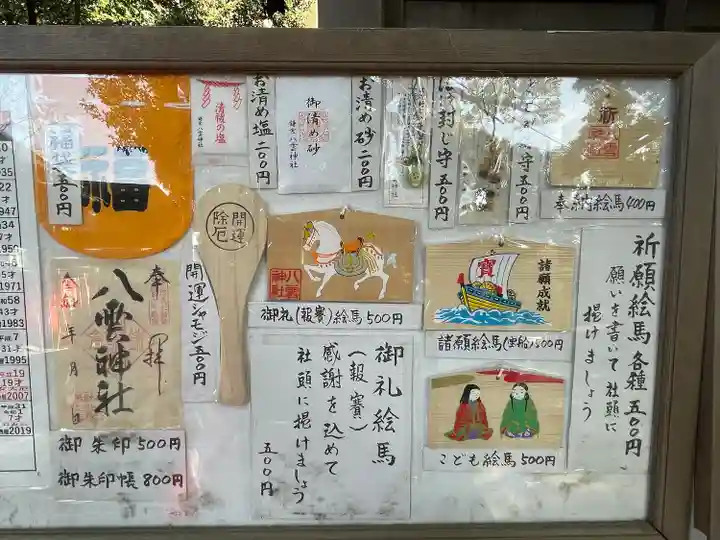 福
福袋五〇〇円
清祓の塩
鎌倉八雲神社
お清め塩二〇〇円
御清め砂
鎌倉八雲神社
お清め砂二〇〇円
封じ守五〇〇円
守五〇〇円
祈
奉納絵馬400円
開運
除厄
開運シャモジ五〇〇円
八雲
神社
御礼(報賽)絵馬500円
寳
諸願成就
諸願絵馬(宝船)500円
こども絵馬500円
祈願絵馬各種五〇〇円
願いを書いて社頭に
掲けましょう
御礼絵馬
(報賽)
感謝を込めて
社頭に掲けましょう
五〇〇円
奉拝
八雲神社
年月日
御朱印500円
御朱印帳800円
1947
1959
1983
平成7
1995
平成19
19才
2007
平成31
令和1
7才
2019